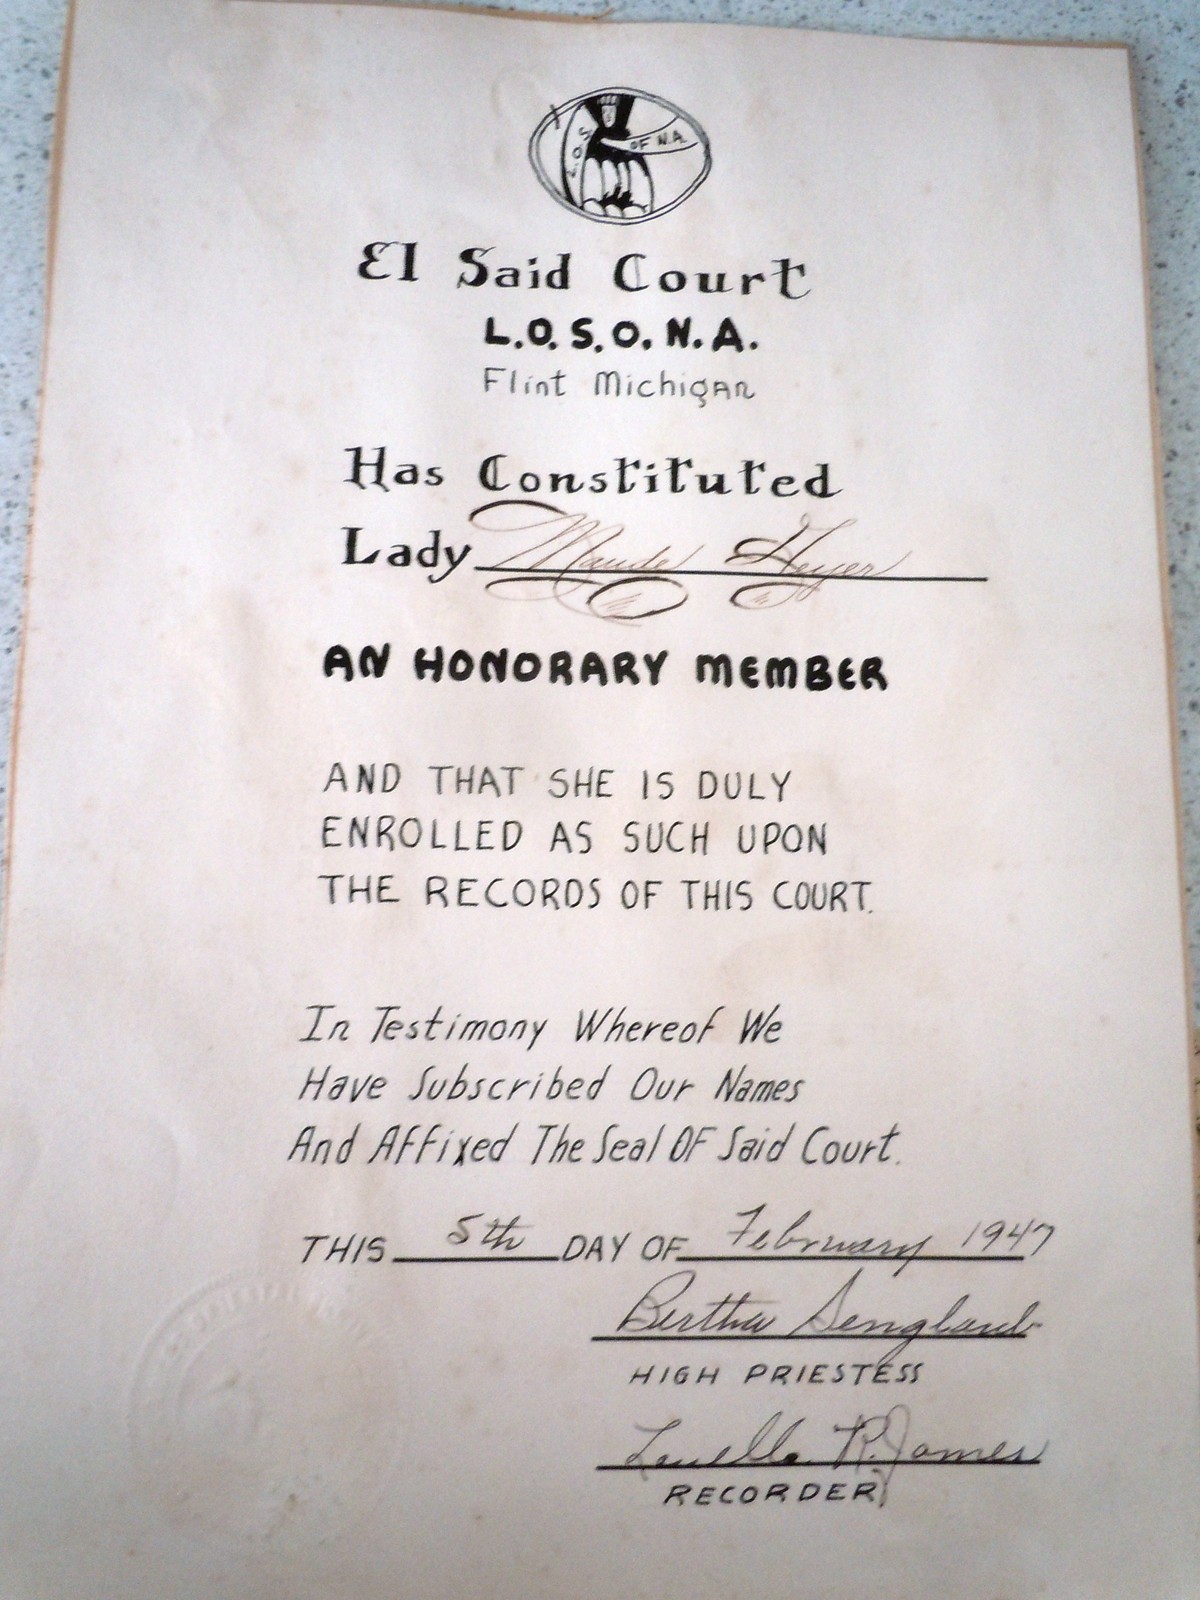 L.O.S. OF N.A.
El Said Court
L.O.S.O.N.A.
Flint Michigan
Has Constituted
Lady Maude Heyer
AN HONORARY MEMBER
AND THAT SHE IS DULY
ENROLLED AS SUCH UPON
THE RECORDS OF THIS COURT.
In Testimony Whereof We
Have Subscribed Our Names
And Affixed The Seal Of Said Court.
THIS 5th DAY OF February 1947
Bertha
HIGH PRIESTESS
Louella R. James
RECORDER